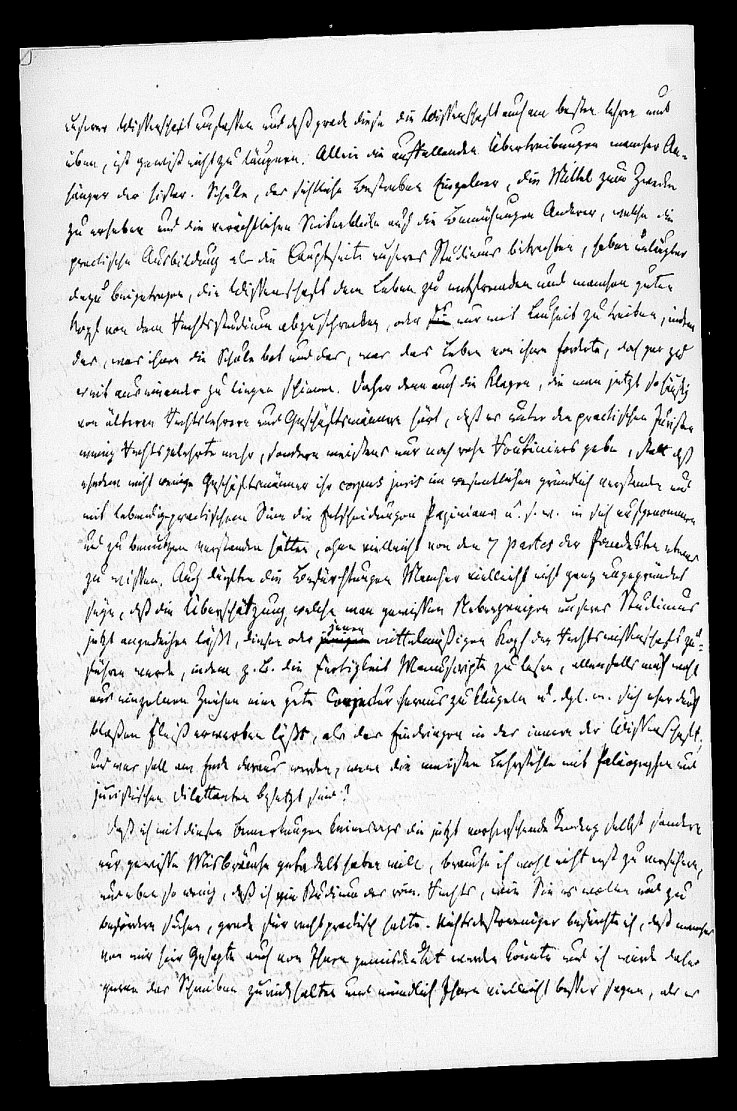 unserer Wissenschaft auffassen und daß grade diese die Wissenschaft auch am besten lehren und
üben, ist gewiß nicht zu läugnen. Allein die auffallenden Übertreibungen mancher An-
hänger der histor. Schule, das sichtliche Bestreben Einzelner, die Mittel zum Zwecke
zu erheben und die verächtlichen Seitenblicke auf die Bemühungen Anderer, welche die
practische Ausbildung als die Hauptseite unseres Studiums betrachten, haben unläugbar
dazu beigetragen, die Wissenschaft dem Leben zu entfremden und manchen guten
Kopf von dem Rechtsstudium abzuschrecken, oder es nur mit Lauheit zu treiben, indem
das, was ihnen die Schule bot und das, was das Leben von ihnen forderte, doch gar zu
weit auseinander zu liegen schienen. Daher denn auch die Klagen, die man jetzt so häufig
von älteren Rechtslehrern und Geschäftsmännern hört, daß es unter den practischen Juristen
wenig Rechtsgelehrte mehr, sondern meistens nur noch rohe Routiniers gebe, statt daß
ehedem nicht wenige Geschäftsmänner ihr corpus juris im wesentlichen gründlich verstanden und
mit lebendig-practischem Sinn die Entscheidungen Papinians u. s. w. in sich aufgenommen
und zu benutzen verstanden hätten, ohne vielleicht von den 7 partes der Pandekten etwas
zu wissen. Auch dürften die Befürchtungen Mancher vielleicht nicht ganz ungegründet
seyn, daß die Überschätzung, welche man gewissen Nebenzweigen unseres Studiums
jetzt angedeihen läßt, diesen oder jenen mittelmäßigen Kopf der Rechtswissenschaft zu-
führen werde, indem z. B. die Fertigkeit Manuscripte zu lesen, allenfalls auch wohl
aus einzelnen Zeichen eine gute Conjectur herauszuklügeln u. dgl. m. sich eher durch
bloßen Fleiß erwerben läßt, als das Eindringen in das innere der Wissenschaft,
und was soll am Ende daraus werden, wenn die meisten Lehrstühle mit Paläographen und
juristischen Dilettanten besetzt sind?
Daß ich mit diesen Bemerkungen keineswegs die jetzt vorherrschende Tendenz selbst sondern
nur gewisse Misbräuche getadelt haben will, brauche ich wohl nicht erst zu versichern,
nur eben so wenig, daß ich ein Studium des röm. Rechts, wie Sie es wollen und zu
befördern suchen, grade für recht practisch halte. Nichtsdestoweniger befürchte ich, daß manches
von mir hier Gesagte auch von Ihnen gemisdeutet werden könnte und ich würde daher
gerne das Schreiben zurückhalten und mündlich Ihnen vielleicht besser sagen, als es